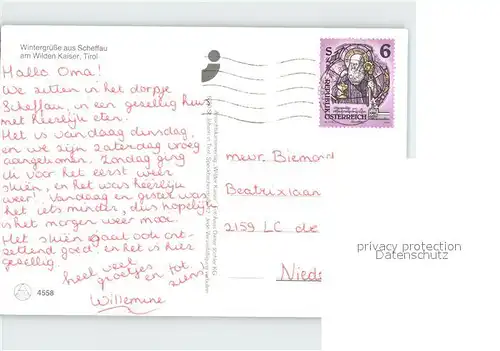 Wintergrüße aus Scheffau
am Wilden Kaiser, Tirol
Hallo Oma!
We zitten in het dorpje
Scheffau, in een gezellig huis
met heerlijk eten.
Het is vandaag dinsdag,
en we zijn zaterdag vroeg
aangekomen. Zondag ging
ik voor het eerst weer
skiën, en het was heerlijk
weer! Vandaag en gister was
het iets minder, dus hopelijk
is het morgen weer mooi.
Het skiën gaat ook ont-
zettend goed en het is hier
gezellig.
heel veel
groetjes en tot
ziens
Willemine
4558
S 6
REPUBLIK
ÖSTERREICH
mevr. Biemond
Beatrixlaan
2159 LC de
Nied
privacy protection
Datenschutz